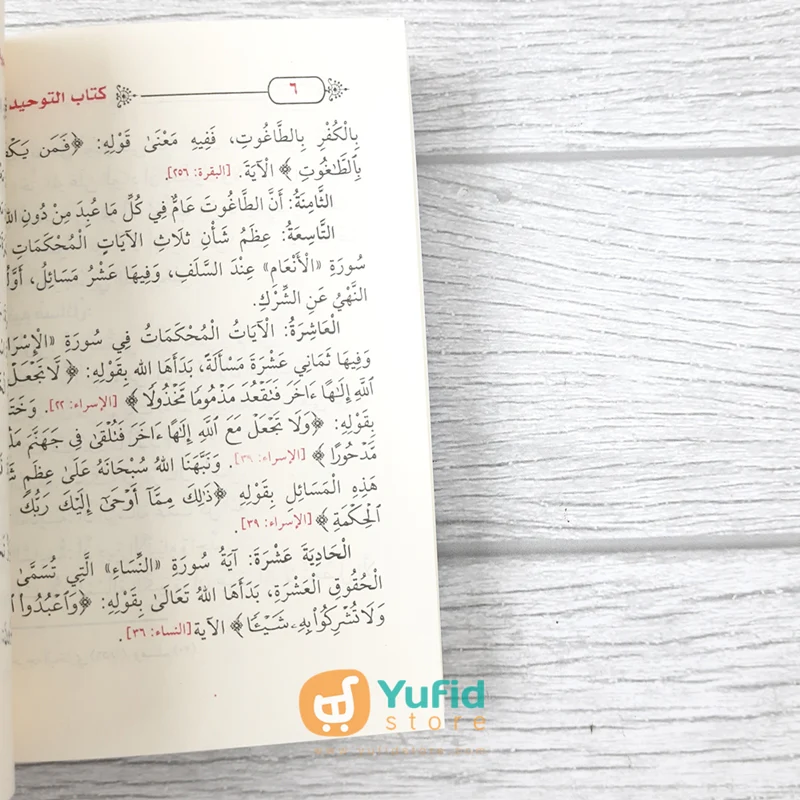 ٦ كتاب التوحيد
بِالْكُفْرِ بِالطَّاغُوتِ، فَفِيهِ مَعْنَىٰ قَوْلِهِ: ﴿فَمَن يَكْفُ
بِالطَّاغُوتِ﴾ الْآيَةَ. [البقرة: ٢٥٦].
الثَّامِنَةُ: أَنَّ الطَّاغُوتَ عَامٌّ فِي كُلِّ مَا عُبِدَ مِنْ دُونِ اللهِ
التَّاسِعَةُ: عِظَمُ شَأْنِ ثَلَاثِ الآيَاتِ الْمُحْكَمَاتِ
سُورَةِ «الْأَنْعَامِ» عِنْدَ السَّلَفِ، وَفِيهَا عَشْرُ مَسَائِلَ، أَوَّلُ
النَّهْيُ عَنِ الشِّرْكِ.
الْعَاشِرَةُ: الْآيَاتُ الْمُحْكَمَاتُ فِي سُورَةِ «الْإِسْرَا
وَفِيهَا ثَمَانِي عَشْرَةَ مَسْأَلَةً، بَدَأَهَا اللهُ بِقَوْلِهِ: ﴿لَّا تَجْعَلْ
اللَّهِ إِلَٰهًا ءَاخَرَ فَتَقْعُدَ مَذْمُومًا مَّخْذُولًا﴾ [الإسراء: ٢٢]. وَخَتَ
بِقَوْلِهِ: ﴿وَلَا تَجْعَلْ مَعَ اللَّهِ إِلَٰهًا ءَاخَرَ فَتُلْقَىٰ فِي جَهَنَّمَ مَلُ
مَّدْحُورًا﴾ [الإسراء: ٣٩]. وَنَبَّهَنَا اللهُ سُبْحَانَهُ عَلَىٰ عِظَمِ شَ
هَذِهِ الْمَسَائِلِ بِقَوْلِهِ ﴿ذَٰلِكَ مِمَّا أَوْحَىٰ إِلَيْكَ رَبُّكَ
الْحِكْمَةِ﴾ [الإسراء: ٣٩].
الْحَادِيَةَ عَشْرَةَ: آيَةُ سُورَةِ «النِّسَاءِ» الَّتِي تُسَمَّىٰ
الْحُقُوقِ الْعَشَرَةِ، بَدَأَهَا اللهُ تَعَالَىٰ بِقَوْلِهِ: ﴿وَاعْبُدُوا ا
وَلَا تُشْرِكُوا بِهِ شَيْئًا﴾ الآية [النساء: ٣٦].
Yufid
store